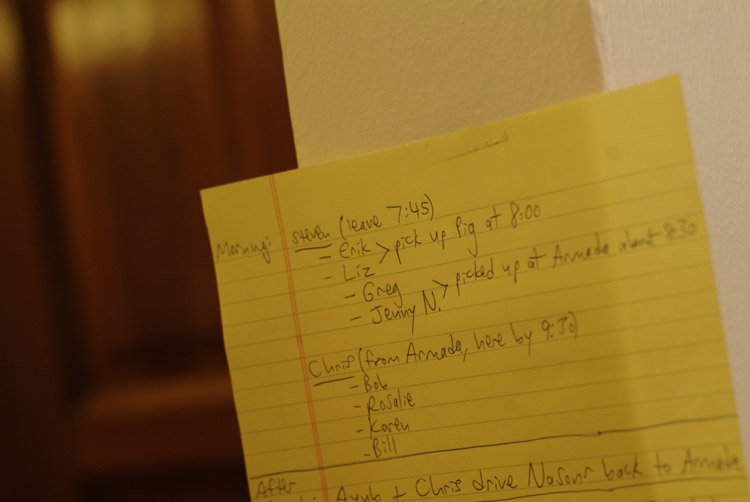 Morning: Steven (leave 7:45)
- Erik > pick up Pig at 8:00
- Liz
- Greg > picked up at Armada about 8:30
- Jenny N.
Chris (from Armada, here by 9:30)
- Bob
- Rosalie
- Karen
- Bill
After
Ayub + Chris drive Nasons back to Armada